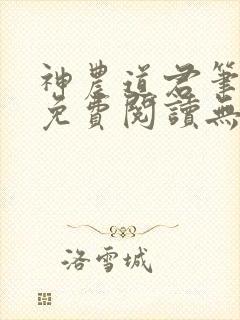 神農道君筆
免費閱讀無
洛雪城